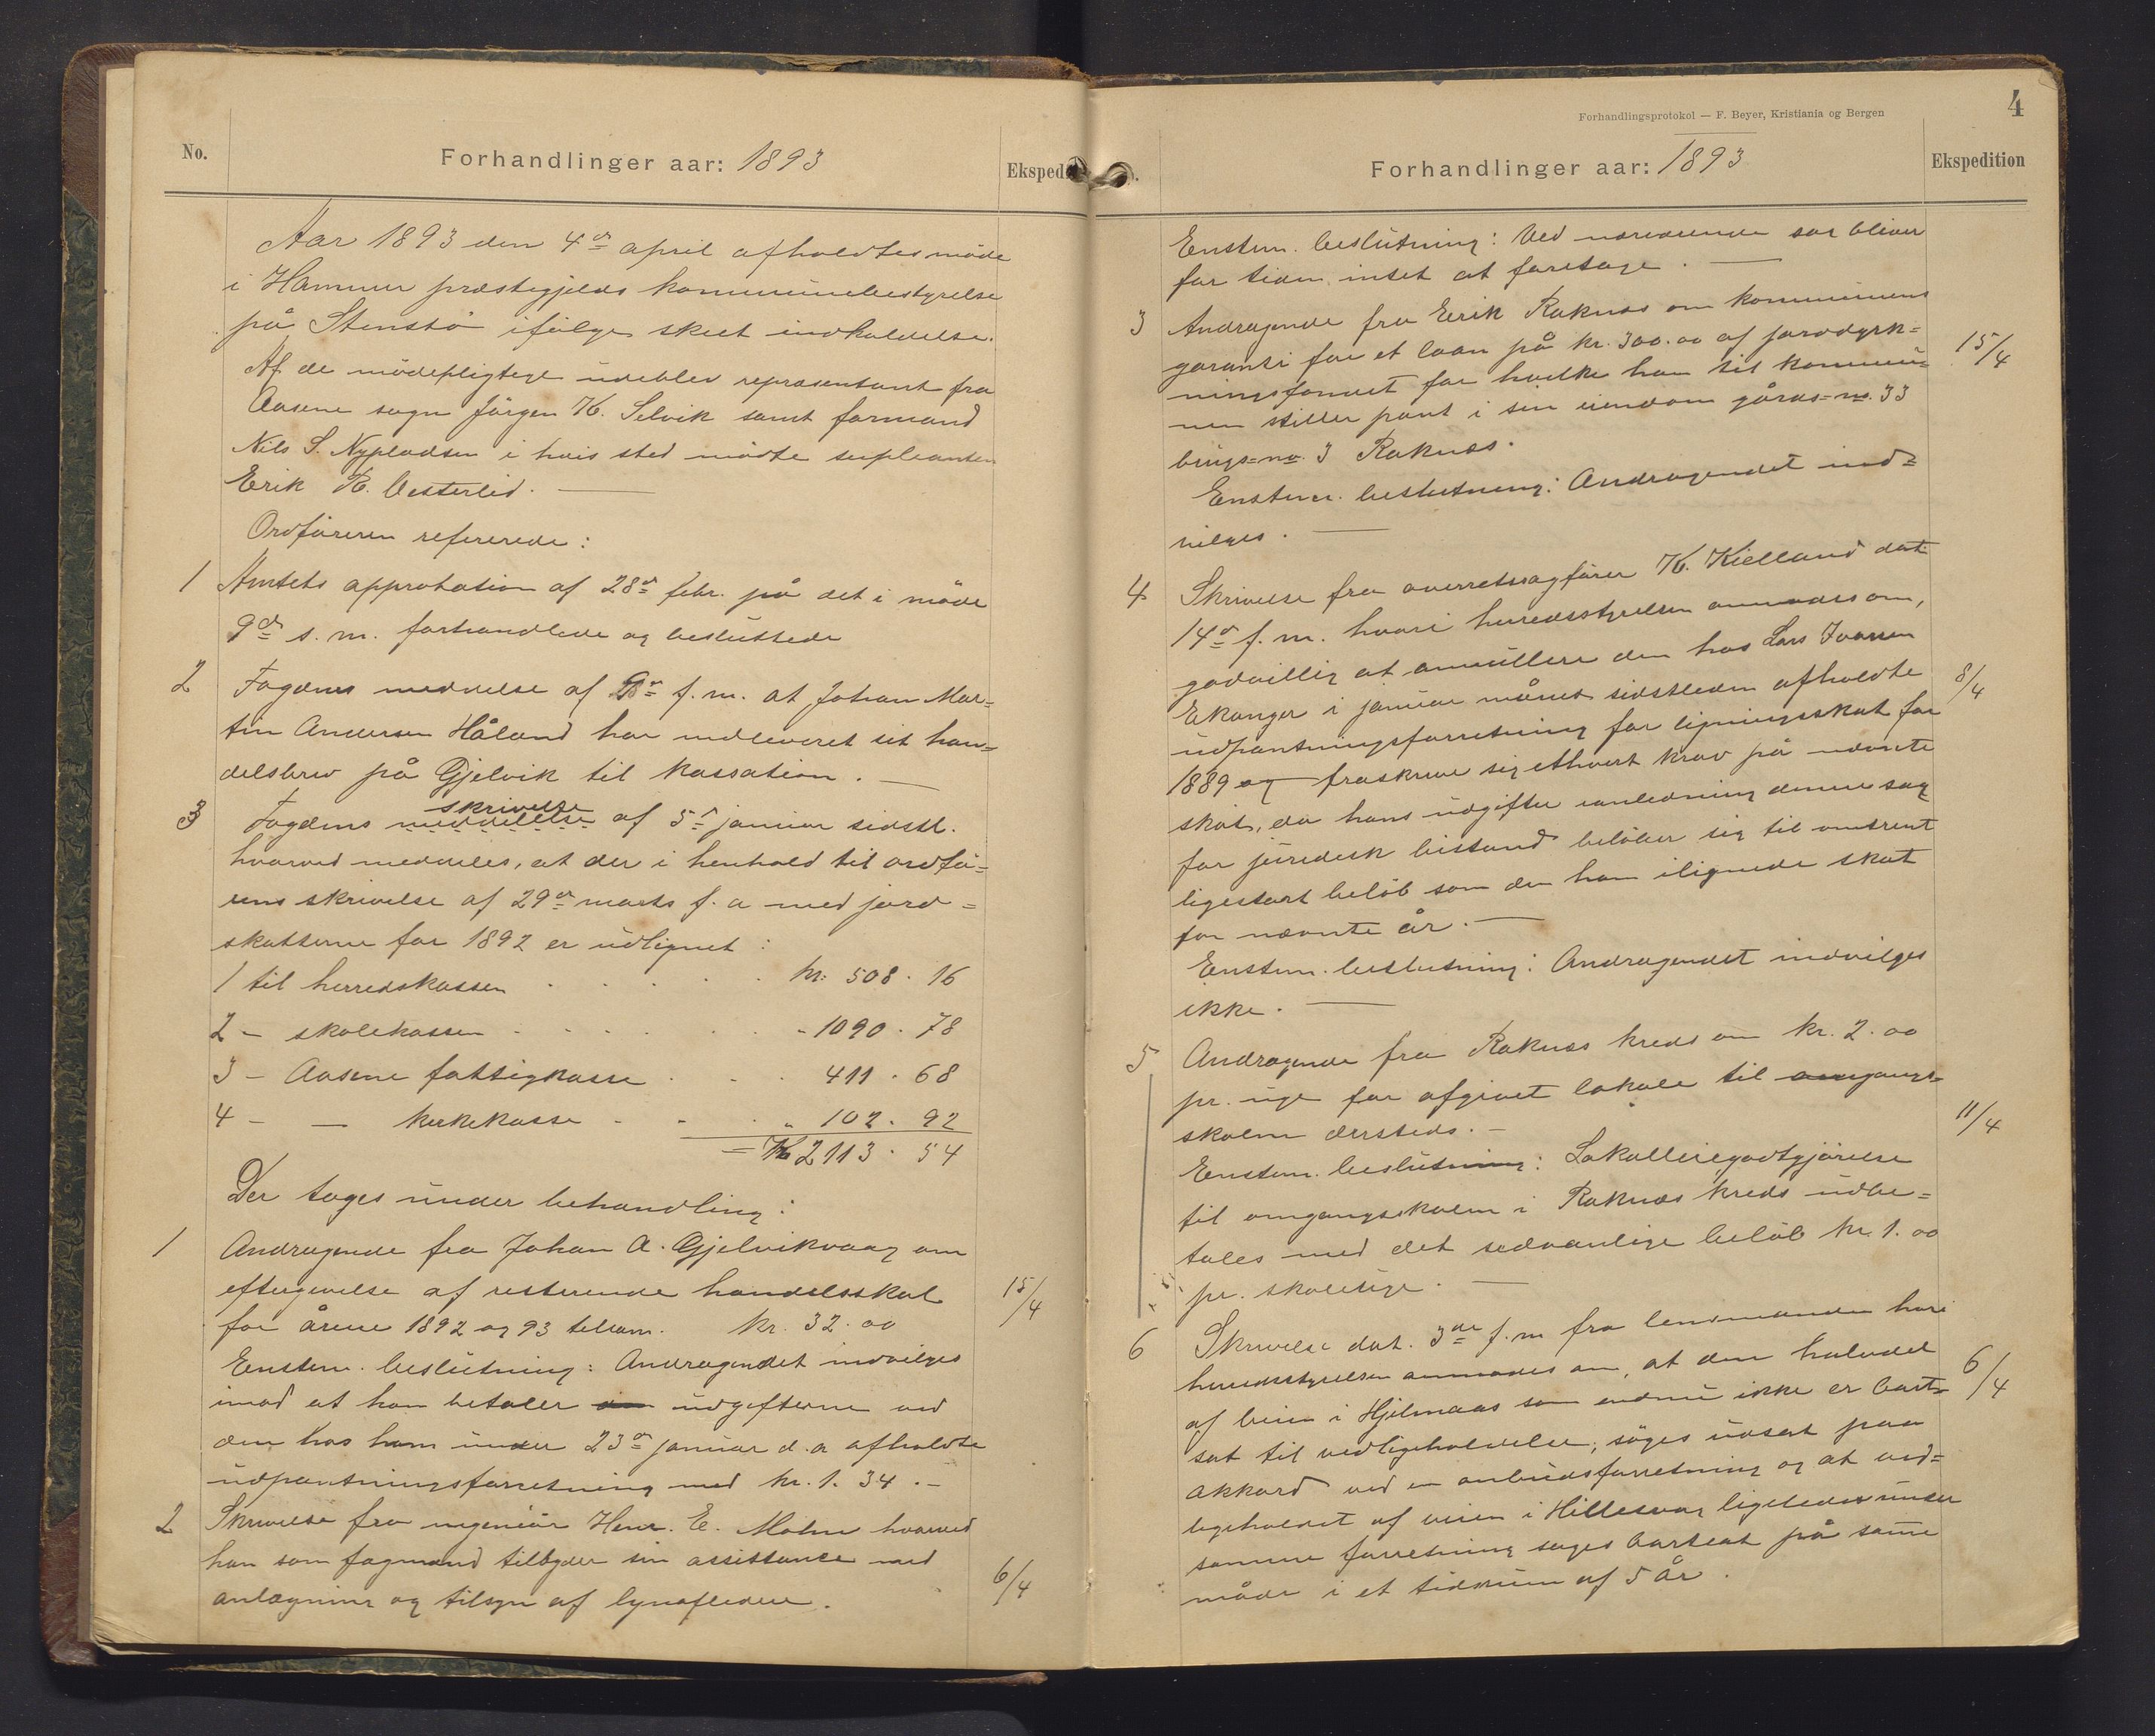 No.
Forhandlinger aar: 1893
Eksped
Aar 1893 den 4de april afholdtes möde
i Hammer præstegjelds kommunebestyrelse
på Stenstö ifölge skeet indkaldelse.
Af de mödepligtige udeblev repræsentant fra
Aasene sogn Jörgen K. Selvik samt formand
Nils S. Nypladsen i hvis sted mödte supleanten
Erik R. Vesterlid. —
Ordföreren refererede:
1 Amtets approbation af 28de febr. på det i möde
9de s. m. forhandlede og besluttede
2 Fogdens meddelse af f. m. at Johan Mar-
tin Andersen Håland har indleveret sit han-
delsbrev på Gjelvik til kassation. —
skrivelse
3 Fogdens meddelelse af 5te januar sidstl.
hvorved meddeles, at der i henhold til ordfö-
rens skrivelse af 29de marts f. a med jord-
skatterne for 1892 er udlignet:
1 til herredskassen . . . . . kr. 508. 16
2 - skolekassen . . . . - 1090. 78
3 - Aasene fattigkasse . . . 411. 68
4 - — kirkekasse . . . „ 102. 92
= Kr 2113. 54
Der toges under behandling:
1 Andragende fra Johan A. Gjelvikvaag om
eftergivelse af resterende handelsskat 15/4
for årene 1892 og 93 tilsam. kr. 32. 00
Enstem. beslutning: Andragendet indvilges
imod at han betaler udgifterne ved
den hos ham under 23de januar d. a afholdte
udpantningsforretning med kr. 1. 34. -
2 Skrivelse fra ingeniör Henr. E. Malm hvorved
han som fagmand tilbyder sin assistance med 6/4
anlægning og tilsyn af lynafledere.
4
Forhandlingsprotokol — F. Beyer, Kristiania og Bergen
Forhandlinger aar: 1893
Ekspedition
Enstem. beslutning: Ved nærværende sag bliver
for tiden intet at foretage. —
3 Andragende fra Erik Raknæs om kommunens
garanti for et laan på kr. 300.00 af jorddyrk= 15/4
ningsfondet for hvilke han til kommu-
nen stiller pant i sin eiendom gårds=no. 33
brugs=no. 3 Raknæs.
Enstem. beslutning: Andragendet ind=
vilges. —
4 Skrivelse fra overretssagförer K. Kielland dat.
14de f. m. hvori herredsstyrelsen anmodes om,
godvillig at annullere den hos Lars Ivarsen
Ekanger i januar måned sidstleden afholdte 8/4
udpantningsforretning for ligningsskat for
1889 og fraskrive sig ethvert krav på nævnte
skat, da hans udgifter i anledning denne sag
for juredisk bistand belöber sig til omtrent
ligestort belöb som den ham ilignede skat
for nævnte år. —
Enstem. beslutning: Andragendet indvilges
ikke. —
5 Andragende fra Raknæs kreds om kr. 2. 00
pr. uge for afgivet lokale til omgangs-
skolen dersteds. - 11/4
Enstem. beslutning: Lokalleiegodtgjörelse
til omgangsskolen i Raknæs kreds udbe=
tales med det sedvanlige belöb kr. 1. 00
pr. skoleuge. —
6 Skrivelse dat. 3die f. m fra lensmanden hvori
herredsstyrelsen anmodes om, at den halvdel 6/4
af veien i Hjelmaas som endnu ikke er bort-
sat til vedligeholdelse, söges udsat paa
akkord ved en anbudsforretning og at ved=
ligeholdet af veien i Hillesvaag ligeledes under
samme forretning soges bortsat på same
måde i et tidsrum af 5 år.